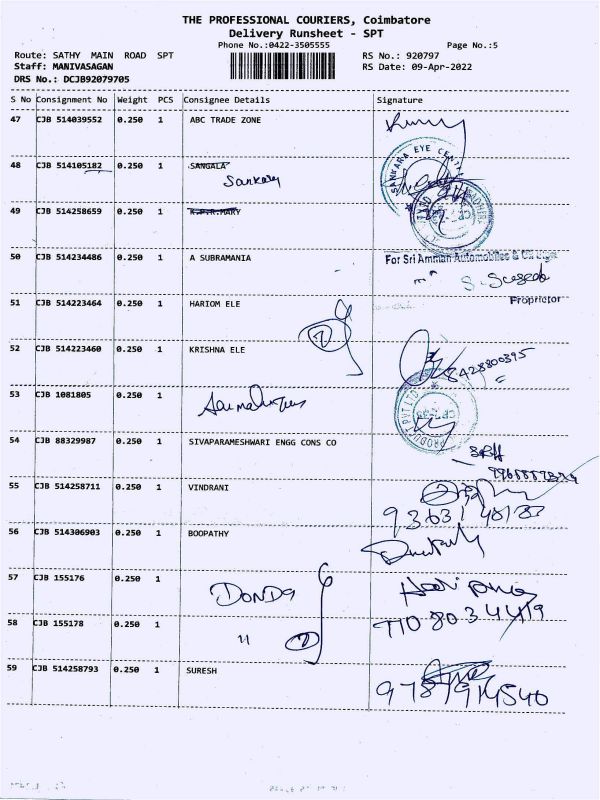 THE PROFESSIONAL COURIERS, Coimbatore
Delivery Runsheet - SPT
Phone No.:0422-3505555 Page No.:5
Route: SATHY MAIN ROAD SPT RS No.: 920797
Staff: MANIVASAGAN RS Date: 09-Apr-2022
DRS No.: DCJB92079705
S No Consignment No Weight PCS Consignee Details Signature
47 CJB 514039552 0.250 1 ABC TRADE ZONE
48 CJB 514105182 0.250 1 SANGALA
Sankara
SANKARA EYE
49 CJB 514258659 0.250 1 K.P.R.MARY
50 CJB 514234486 0.250 1 A SUBRAMANIA
For Sri Amman Automobiles &
Proprietor
51 CJB 514223464 0.250 1 HARIOM ELE
2
52 CJB 514223460 0.250 1 KRISHNA ELE
53 CJB 1081805 0.250 1
PRODUCT PVT LTD
54 CJB 88329987 0.250 1 SIVAPARAMESHWARI ENGG CONS CO
55 CJB 514258711 0.250 1 VINDRANI
56 CJB 514306903 0.250 1 BOOPATHY
57 CJB 155176 0.250 1
58 CJB 155178 0.250 1 " 2
59 CJB 514258793 0.250 1 SURESH